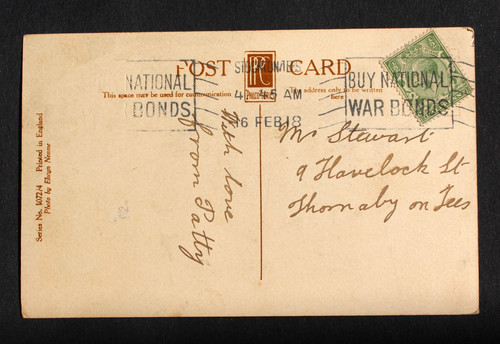 POST CARD
This space may be used for communication
The address only to be written
here
NATIONAL
BONDS
4.45 AM
16 FEB 18
BUY NATIONAL
WAR BONDS
With love
from Patty
Mr Stewart
9 Havelock St
Thornaby on Tees
Series No. 1072/4 Printed in England
Photo by Elwyn Neame